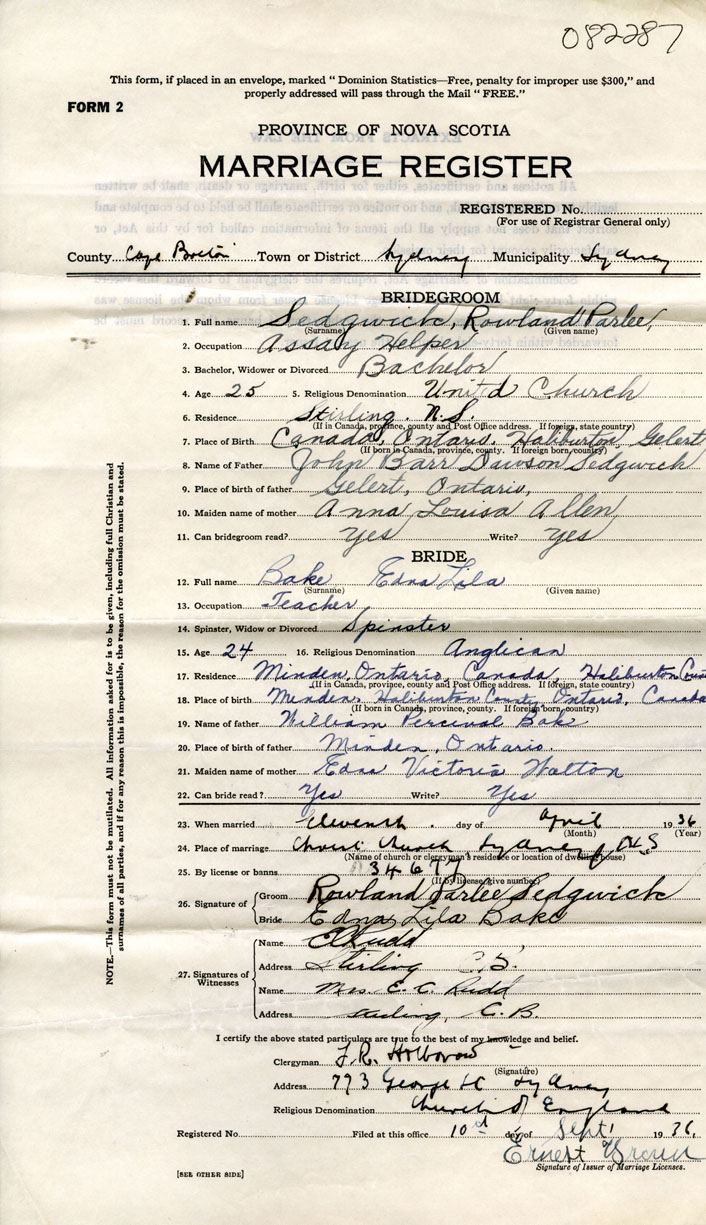 082287
This form, if placed in an envelope, marked " Dominion Statistics—Free, penalty for improper use $300," and
properly addressed will pass through the Mail " FREE."
FORM 2
PROVINCE OF NOVA SCOTIA
MARRIAGE REGISTER
REGISTERED No.
(For use of Registrar General only)
County Cape Breton Town or District Sydney Municipality Sydney
BRIDEGROOM
1. Full name Sedgwick, Rowland Parlee,
(Surname) (Given name)
2. Occupation Assay Helper
3. Bachelor, Widower or Divorced Bachelor
4. Age 25 5. Religious Denomination United Church
6. Residence Stirling. N.S.
(If in Canada, province, county and Post Office address. If foreign, state country)
7. Place of Birth Canada, Ontario, Haliburton Gelert
(If born in Canada, province, county. If foreign born, country)
8. Name of Father John Barr Dawson Sedgwick
9. Place of birth of father Gelert, Ontario,
10. Maiden name of mother Anna Louisa Allen
11. Can bridegroom read? Yes Write? Yes
BRIDE
12. Full name Bake Edna Lila
(Surname) (Given name)
13. Occupation Teacher
14. Spinster, Widow or Divorced Spinster
15. Age 24 16. Religious Denomination Anglican
17. Residence Minden, Ontario, Canada, Haliburton
(If in Canada, province, county and Post Office address. If foreign, state country)
18. Place of birth Minden, Haliburton County, Ontario, Canada
(If born in Canada, province, county. If foreign born, country)
19. Name of father William Percival Bake
20. Place of birth of father Minden, Ontario.
21. Maiden name of mother Edna Victoria Walton
22. Can bride read? Yes Write? Yes
23. When married eleventh day of April 1936
(Month) (Year)
24. Place of marriage Christ Church, Sydney, N.S
(Name of church or clergyman's residence or location of dwelling house)
25. By license or banns 34677
(If by license, give number)
26. Signature of
Groom Rowland Parlee Sedgwick
Bride Edna Lila Bake
27. Signatures of Witnesses
Name Rudd
Address Stirling C.B.
Name Mrs. E. C. Rudd
Address Stirling, C.B.
I certify the above stated particulars are true to the best of my knowledge and belief.
Clergyman
(Signature)
Address 773 George St Sydney
Religious Denomination Church of England
Registered No. Filed at this office 10 day of Sept 1936,
Ernest
Signature of Issuer of Marriage Licenses.
[SEE OTHER SIDE]
NOTE.—This form must not be mutilated. All information asked for is to be given, including full Christian and
surnames of all parties, and if for any reason this is impossible, the reason for the omission must be stated.